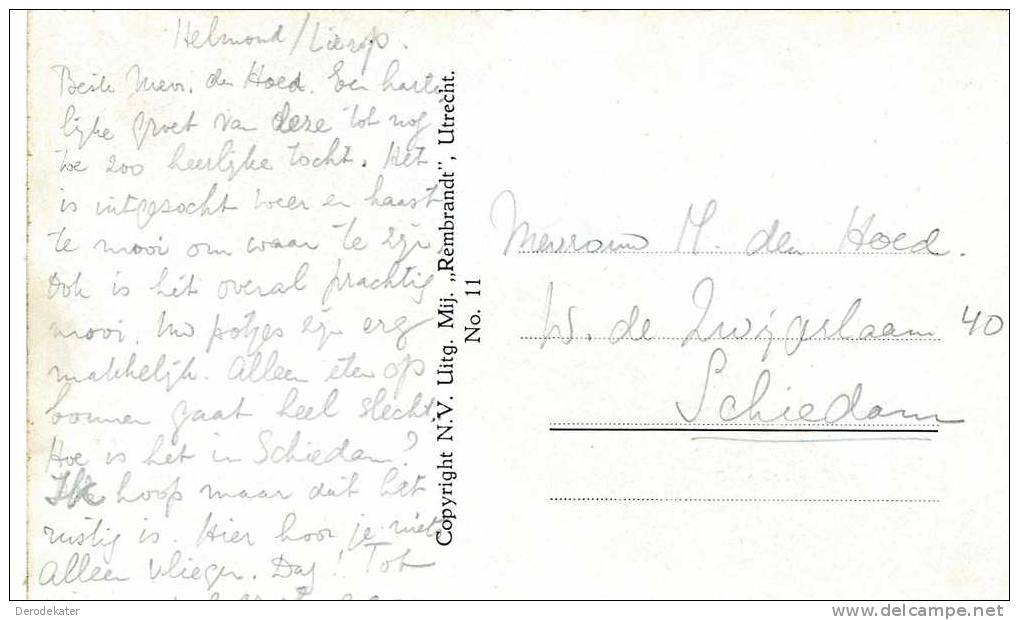 Helmond/Lierop.
Beste Mevr. den Hoed. Een harte
lijke groet van deze tot nog
toe zoo heerlijke tocht. Het
is uitgezocht weer en haast
te mooi om waar te zijn
Ook is hét overal prachtig
mooi. Uw potjes zijn erg
makkelijk. Alleen eten op
bonnen gaat heel slecht.
Hoe is het in Schiedam?
Ik hoop maar dat het
rustig is. Hier hoor je niets
Alleen vliegen. Dag! Tot
Copyright N.V. Uitg. Mij. „Rembrandt", Utrecht.
No. 11
Mevrouw M. den Hoed.
W. de Zwijgerlaan 40
Schiedam
Derodekater
delcampe.net